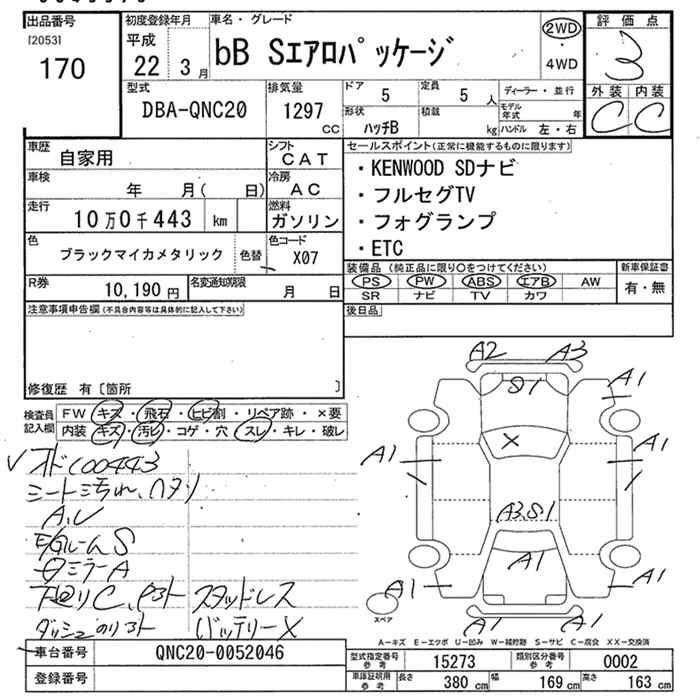 出品番号
[2053]
170
初度登録年月
平成
22 3月
車名・グレード
bB Sエアロパッケージ
2WD
・
4WD
評価点
3
外装 内装
C C
型式
DBA-QNC20
排気量
1297
CC
ドア
5
定員
5人
形状
ハッチB
積載
kg
ディーラー・並行
モデル年式 年
ハンドル 左・右
車歴
自家用
シフト
CAT
車検
年 月( 日)
冷房
AC
走行
10万0千443 km
燃料
ガソリン
色
ブラックマイカメタリック
色替
色コード
X07
R券
10,190円
名変通知期限
月 日
セールスポイント(正常に機能するものに限ります)
・KENWOOD SDナビ
・フルセグTV
・フォグランプ
・ETC
装備品 (純正品に限り○をつけてください)
PS PW ABS エアB AW
SR ナビ TV カワ
新車保証書
有・無
後日品
注意事項申告欄(不具合内容等は具体的に記入して下さい)
修復歴 有〔箇所 〕
検査員記入欄
FW キズ・飛石・ヒビ割・リペア跡・×要
内装 キズ・汚レ・コゲ・穴・スレ・キレ・破レ
オド100443
シート汚れ、ヘタリ
A,U
E/GルームS
ミラーA
下廻りC、
スタッドレス
バッテリーX
A2 A3
S1
A1
X
A1 A1
A3.S1
A1
A1 A1
A1 A1
スペア
A-キズ E-エクボ U-凹み W-補修跡 S-サビ C-腐食 XX-交換済
車台番号
QNC20-0052046
登録番号
型式指定番号
参考
15273
類別区分番号
参考
0002
車庫証明用
参考
長さ 380cm 幅 169cm 高さ 163cm